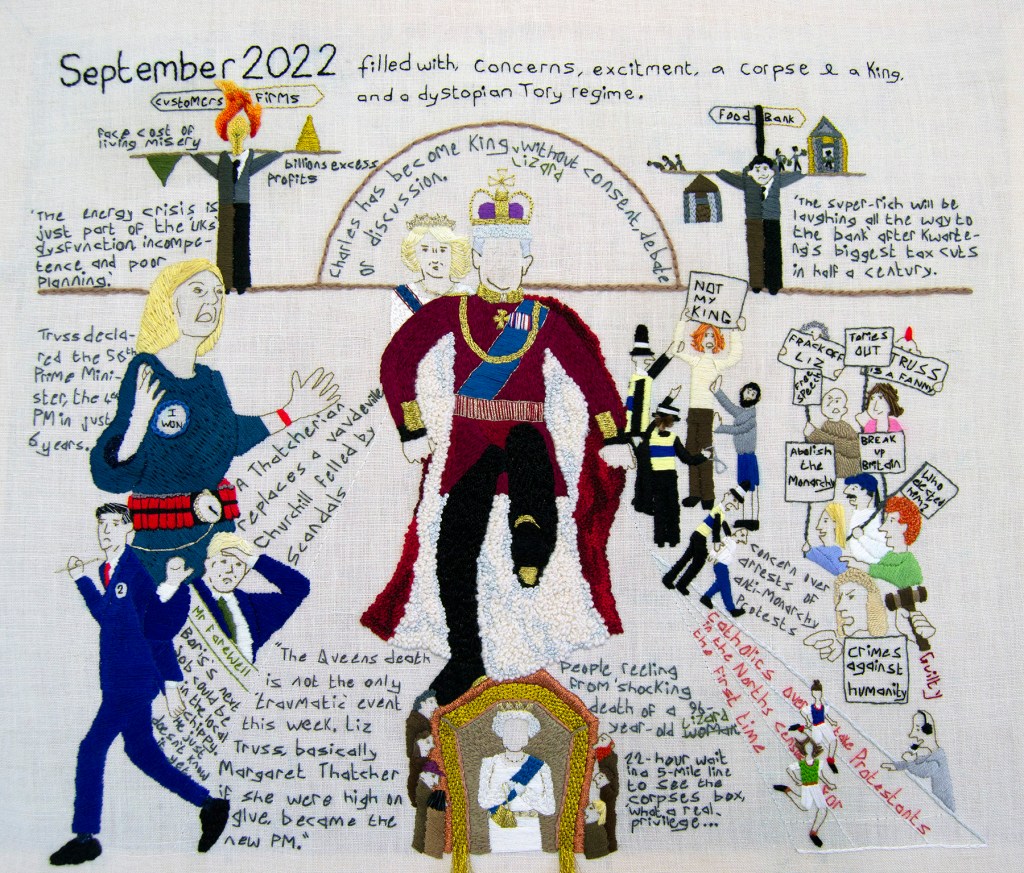 September 2022
filled with, concerns, excitment, a corpse & a King,
and a dystopian Tory regime.
customers firms
face cost of
living misery
billions excess
profits
'The energy crisis is
just part of the UK's
dysfunction, incompe-
tence, and poor
planning.'
Charles has become King, without consent, debate
Lizard
or discussion.
Food Bank
'The super-rich will be
laughing all the way to
the bank' after Kwarte-
ng's biggest tax cuts
in half a century.
Truss decla-
red the 56th
Prime Mini-
ster, the 4th
PM in just
6 years.
I
WON
A Thatcherian
replaces a vaudeville
Churchill felled by
Scandals
NOT
MY
KING
FRACK OFF
LIZ
TORIES
OUT
TRUSS
IS A FANNY
Free
Speech
Abolish
the
Monarchy
BREAK
UP
Britain
Who
elected
him?
2
Mr Farewell
Boris's next
job could be
in the local
chippy,
he just
doesn't know
it yet
"The Queens death
is not the only
'traumatic' event
this week, Liz
Truss, basically
Margaret Thatcher
if she were high on
glue, became the
new PM."
People reeling
from 'shocking
death of a 96-
year-old woman.
Lizard
22-hour wait
in a 5-mile line
to see the
corpses box,
'what a real
privilege...
concern over
arrests of
anti-monarchy
Protests
Catholics over take Protestants
in the Norths census for
the first time
Crimes
against
humanity
Guilty